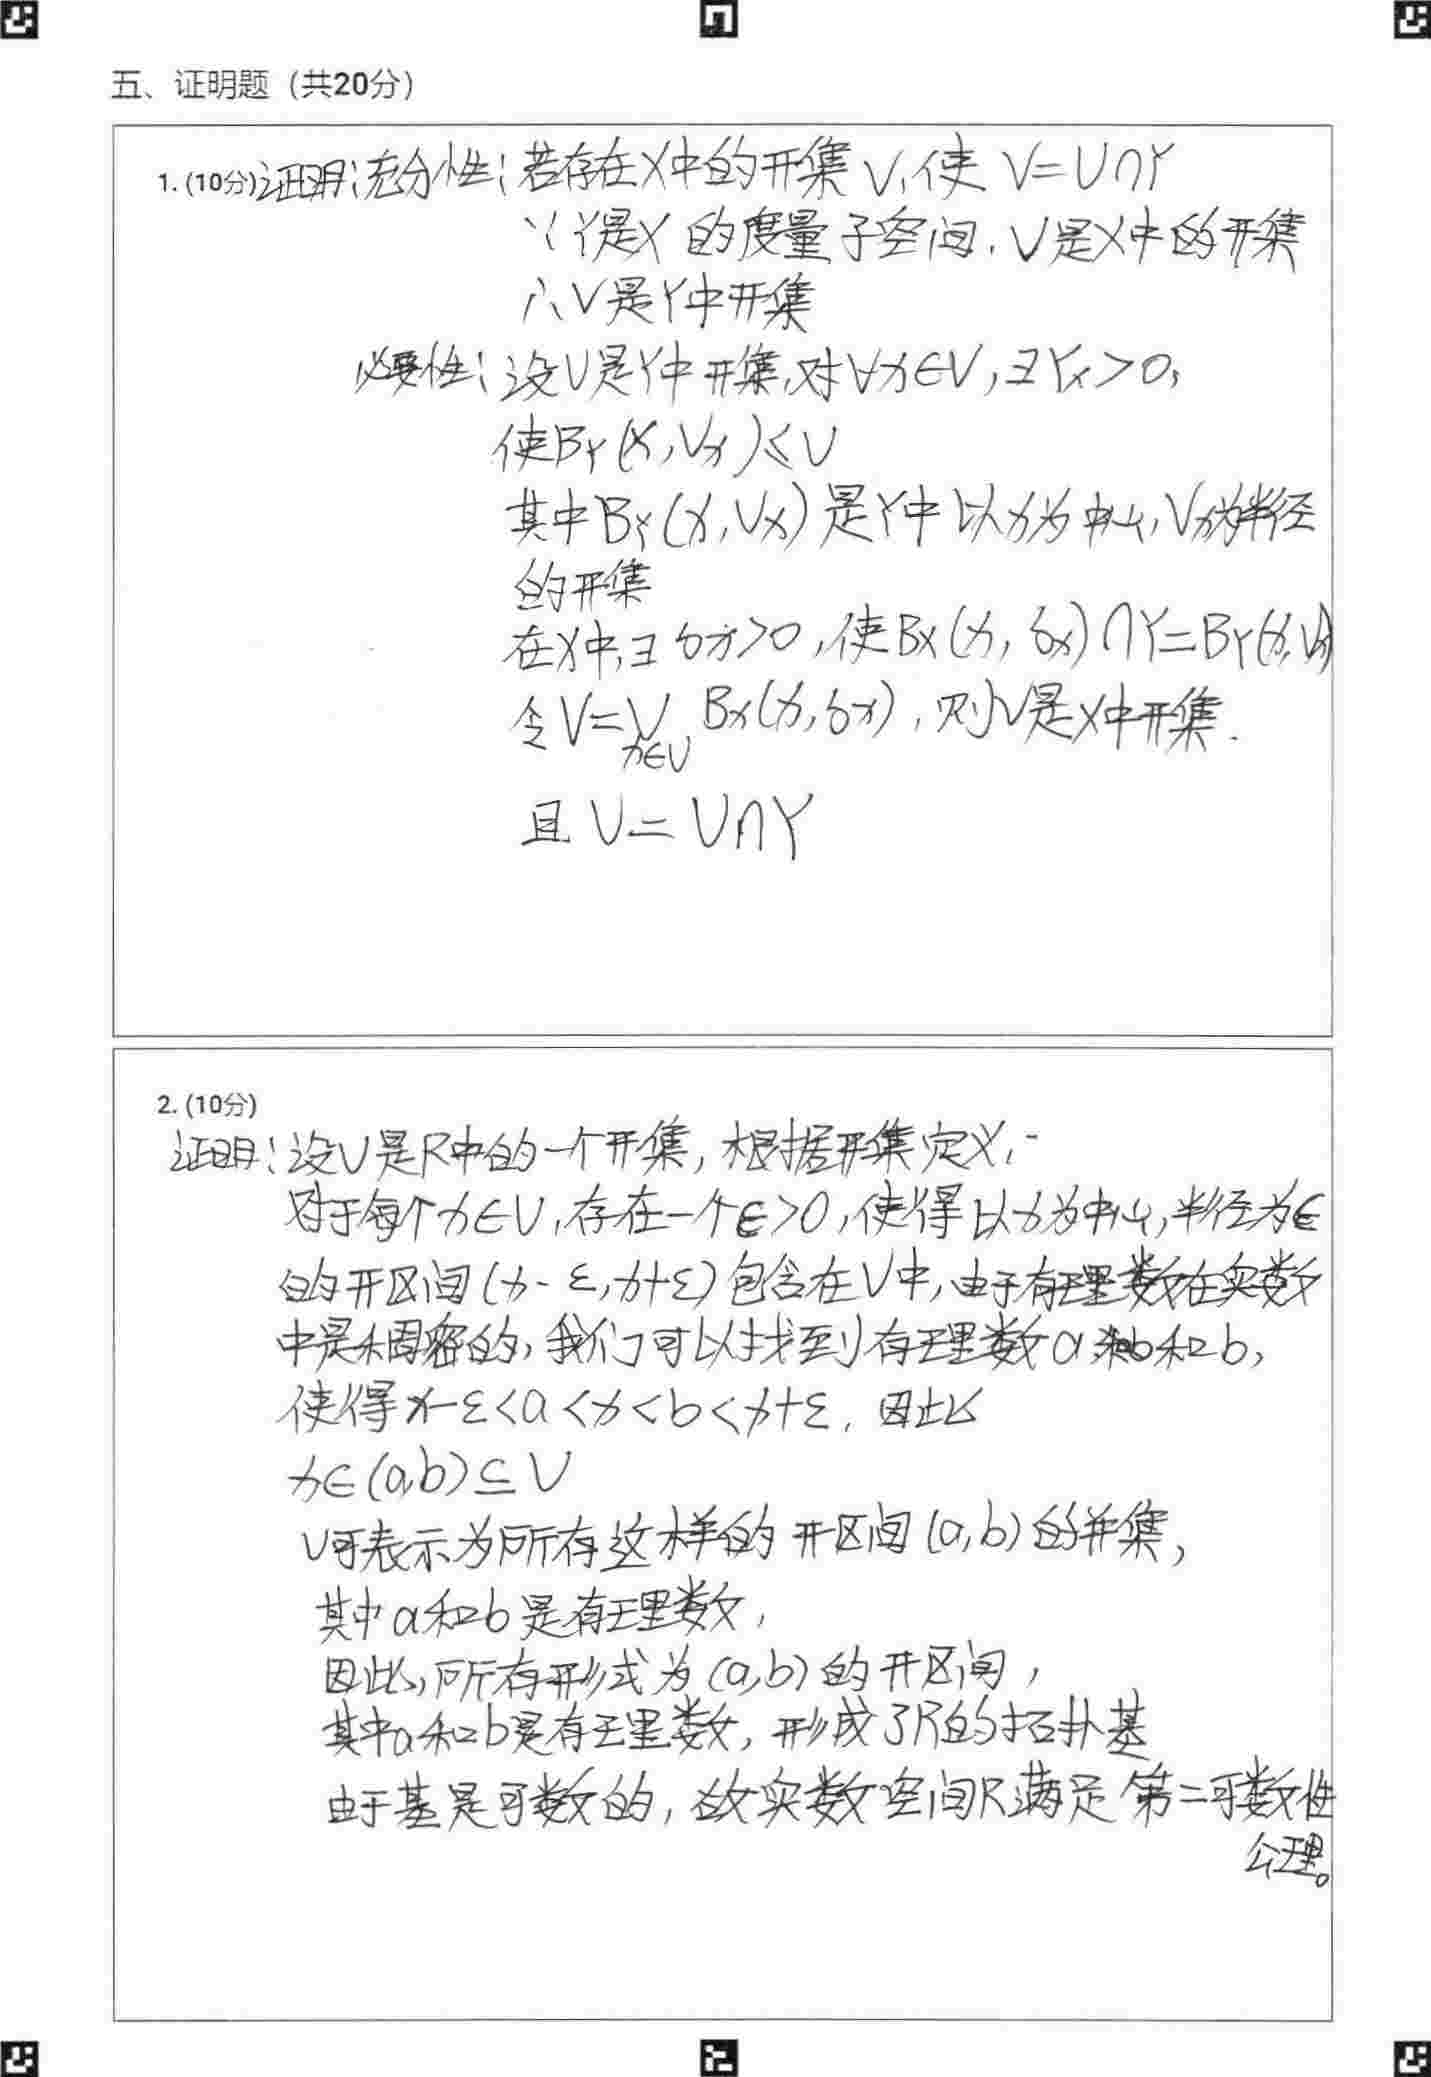 五、证明题（共20分）
1. (10分) 证明:充分性:若存在X中的开集V,使 V=U∩Y
∵Y是X的度量子空间.V是X中的开集
∴V是Y中开集
必要性:设U是Y中开集,对∀x∈V,∃Yx>0,
使BY(x,Vx)≤U
其中BY(x,Vx)是Y中以x为中心,Vx为半径
的开集
在X中,∃δx>0,使BX(x,δx)∩Y=BY(x,Vx)
令V=∪BX(x,δx),则V是X中开集.
x∈U
且 V=V∩Y
2. (10分)
证明:设U是R中的一个开集,根据开集定义,
对于每个x∈U,存在一个ε>0,使得以x为中心,半径为ε
的开区间(x-ε,x+ε)包含在U中,由于有理数在实数
中是稠密的,我们可以找到有理数a和b,
使得x-ε<a<x<b<x+ε,因此
x∈(a,b)⊆U
U可表示为所有这样的开区间(a,b)的并集,
其中a和b是有理数,
因此,所有形式为(a,b)的开区间,
其中a和b是有理数,形成了R的拓扑基
由于基是可数的,故实数空间R满足第二可数性
公理。